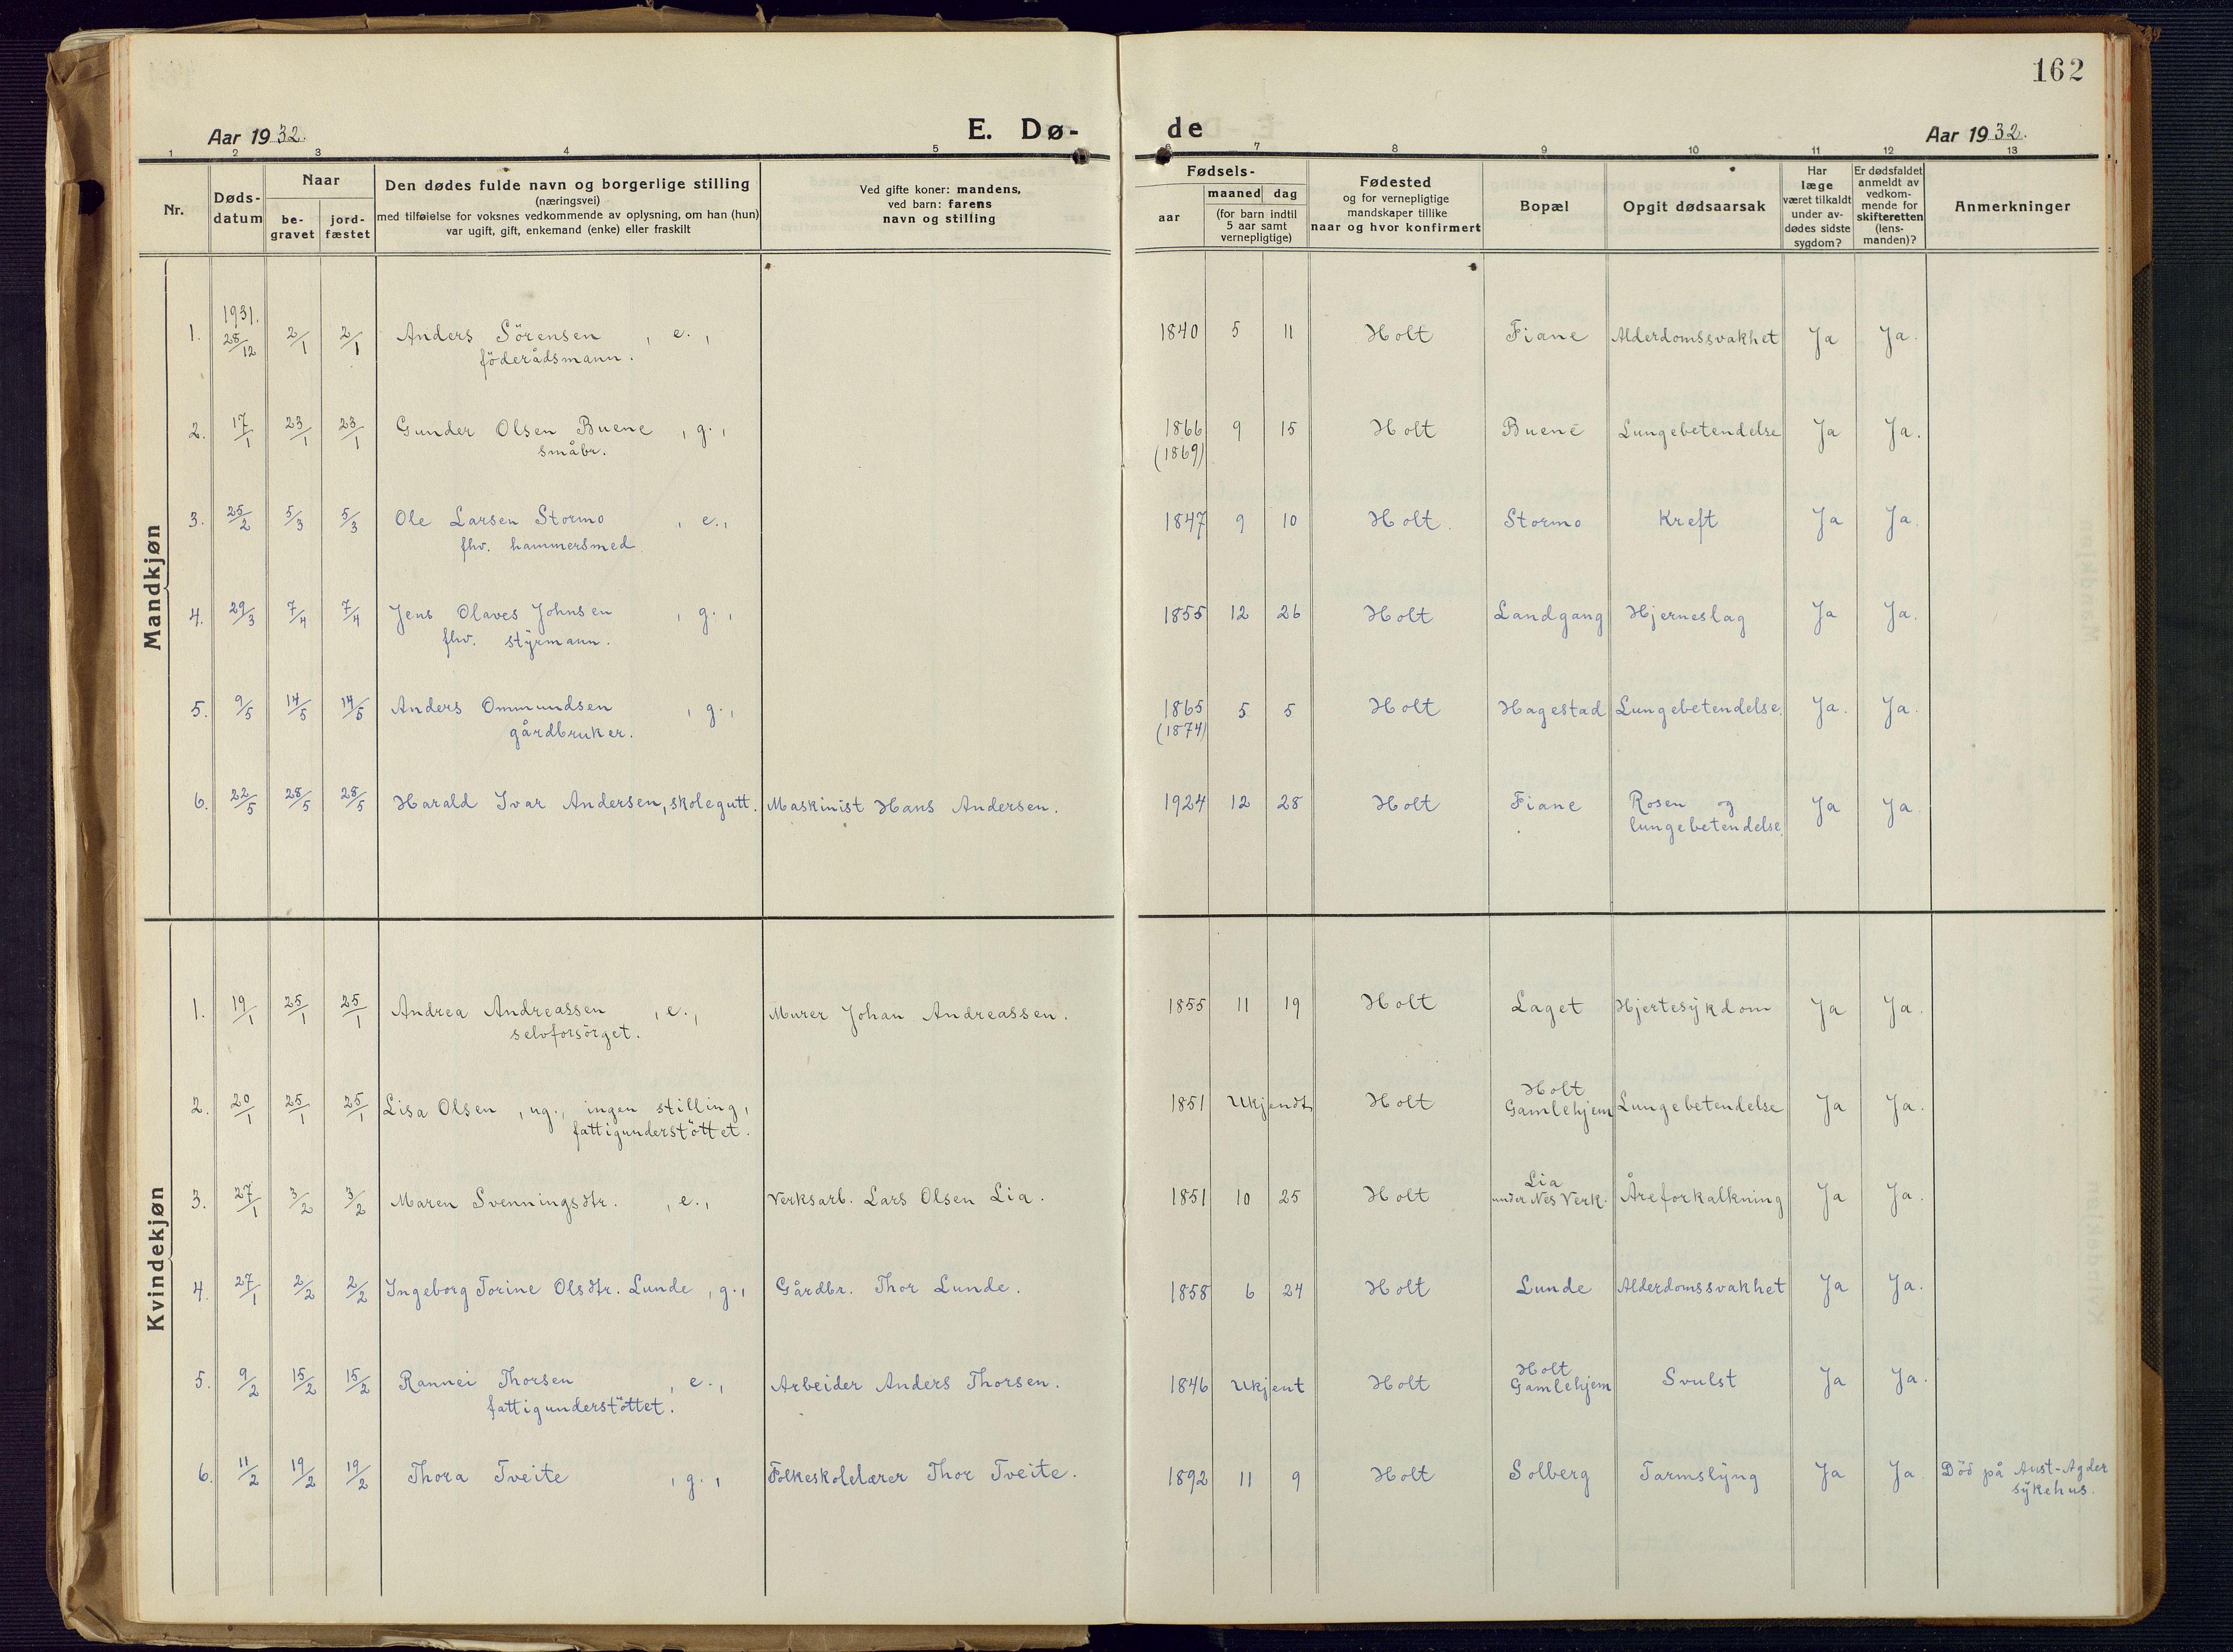 162
Aar 1932. E. Dø- de Aar 1932.
1 2 3 4 5 6 7 8 9 10 11 12 13
Nr.
Døds-
datum
Naar
be-
gravet
jord-
fæstet
Den dødes fulde navn og borgerlige stilling
(næringsvei)
med tilføielse for voksnes vedkommende av oplysning, om han (hun)
var ugift, gift, enkemand (enke) eller fraskilt
Ved gifte koner: mandens,
ved barn: farens
navn og stilling
Fødsels-
aar
maaned dag
(for barn indtil
5 aar samt
vernepligtige)
Fødested
og for vernepligtige
mandskaper tillike
naar og hvor konfirmert
Bopæl
Opgit dødsaarsak
Har
læge
været tilkaldt
under av-
dødes sidste
sygdom?
Er dødsfaldet
anmeldt av
vedkom-
mende for
skifteretten
(lens-
manden)?
Anmerkninger
Mandkjøn
1931.
1. 28/12 2/1 2/1 Anders Sörensen, e., 1840 5 11 Holt Fiane Alderdomssvakhet Ja Ja.
föderådsmann.
2. 17/1 23/1 23/1 Gunder Olsen Buene, g., 1866 9 15 Holt Buene Lungebetendelse Ja Ja.
småbr. (1869)
3. 25/2 5/3 5/3 Ole Larsen Stormo, e., 1847 9 10 Holt. Stormo Kreft Ja Ja.
fhv. hammersmed
4. 29/3 7/4 7/4 Jens Olaves Johnsen, g., 1855 12 26 Holt Landgang Hjerneslag Ja Ja.
fhv. styrmann.
5. 9/5 14/5 14/5 Anders Ommundsen, g., 1865 5 5 Holt Hagestad Lungebetendelse. Ja. Ja.
gårdbruker. (1874)
6. 22/5 28/5 28/5 Harald Ivar Andersen, skolegutt. Maskinist Hans Andersen. 1924 12 28 Holt Fiane Rosen og Ja Ja
lungebetendelse.
Kvindekjøn
1. 19/1 25/1 25/1 Andrea Andreassen, e., Murer Johan Andreassen. 1855 11 19 Holt Laget Hjertesykdom Ja Ja.
selvforsörget.
2. 20/1 25/1 25/1 Lisa Olsen, ug., ingen stilling, 1851 Ukjendt Holt Holt Gamlehjem Lungebetendelse Ja Ja.
fattigunderstöttet.
3. 27/1 3/2 3/2 Maren Svenningsdtr., e., Verksarb. Lars Olsen Lia. 1851 10 25 Holt Lia under Nes Verk. Åreforkalkning Ja Ja.
4. 27/1 2/2 2/2 Ingeborg Torine Olsdtr. Lunde, g., Gårdbr. Thor Lunde. 1858 6 24 Holt Lunde Alderdomssvakhet Ja Ja.
5. 9/2 15/2 15/2 Rannei Thorsen, e., Arbeider Anders Thorsen. 1846 Ukjent Holt Holt Gamlehjem Svulst Ja Ja.
fattigunderstöttet.
6. 11/2 19/2 19/2 Thora Tveite, g., Folkeskolelærer Thor Tveite. 1892 11 9 Holt Solberg Tarmslyng Ja Ja Död på Aust-Agder
sykehus.